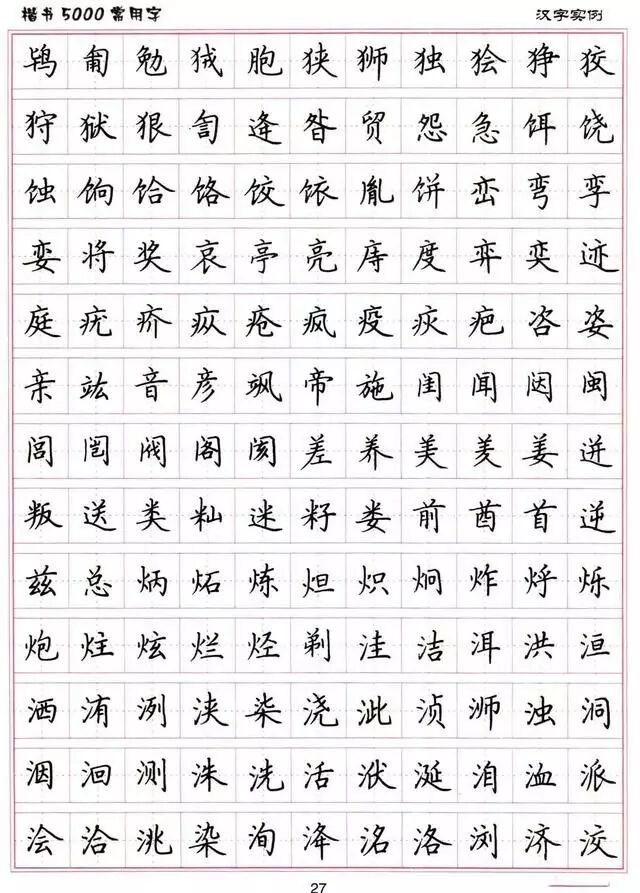 楷书5000常用字 汉字实例
鸨 匍 勉 狨 胞 狭 狮 独 狯 狰 狡
狩 狱 狠 訇 逄 昝 贸 怨 急 饵 饶
蚀 饷 饸 饹 饺 依 胤 饼 峦 弯 孪
娈 将 奖 哀 亭 亮 庤 度 弈 奕 迹
庭 疣 疥 疭 疮 疯 疫 疢 疤 咨 姿
亲 竑 音 彦 飒 帝 施 闺 闻 闼 闽
闾 闿 阀 阁 阂 差 养 美 羑 姜 迸
叛 送 类 籼 迷 籽 娄 前 酋 首 逆
兹 总 炳 炻 炼 烜 炽 炯 炸 烀 烁
炮 炷 炫 烂 烃 剃 洼 洁 洱 洪 洹
洒 洧 洌 浃 柒 浇 泚 浈 浉 浊 洞
洇 洄 测 洙 洗 活 洑 涎 洎 洫 派
浍 洽 洮 染 洵 洚 洺 洛 浏 济 洨
27